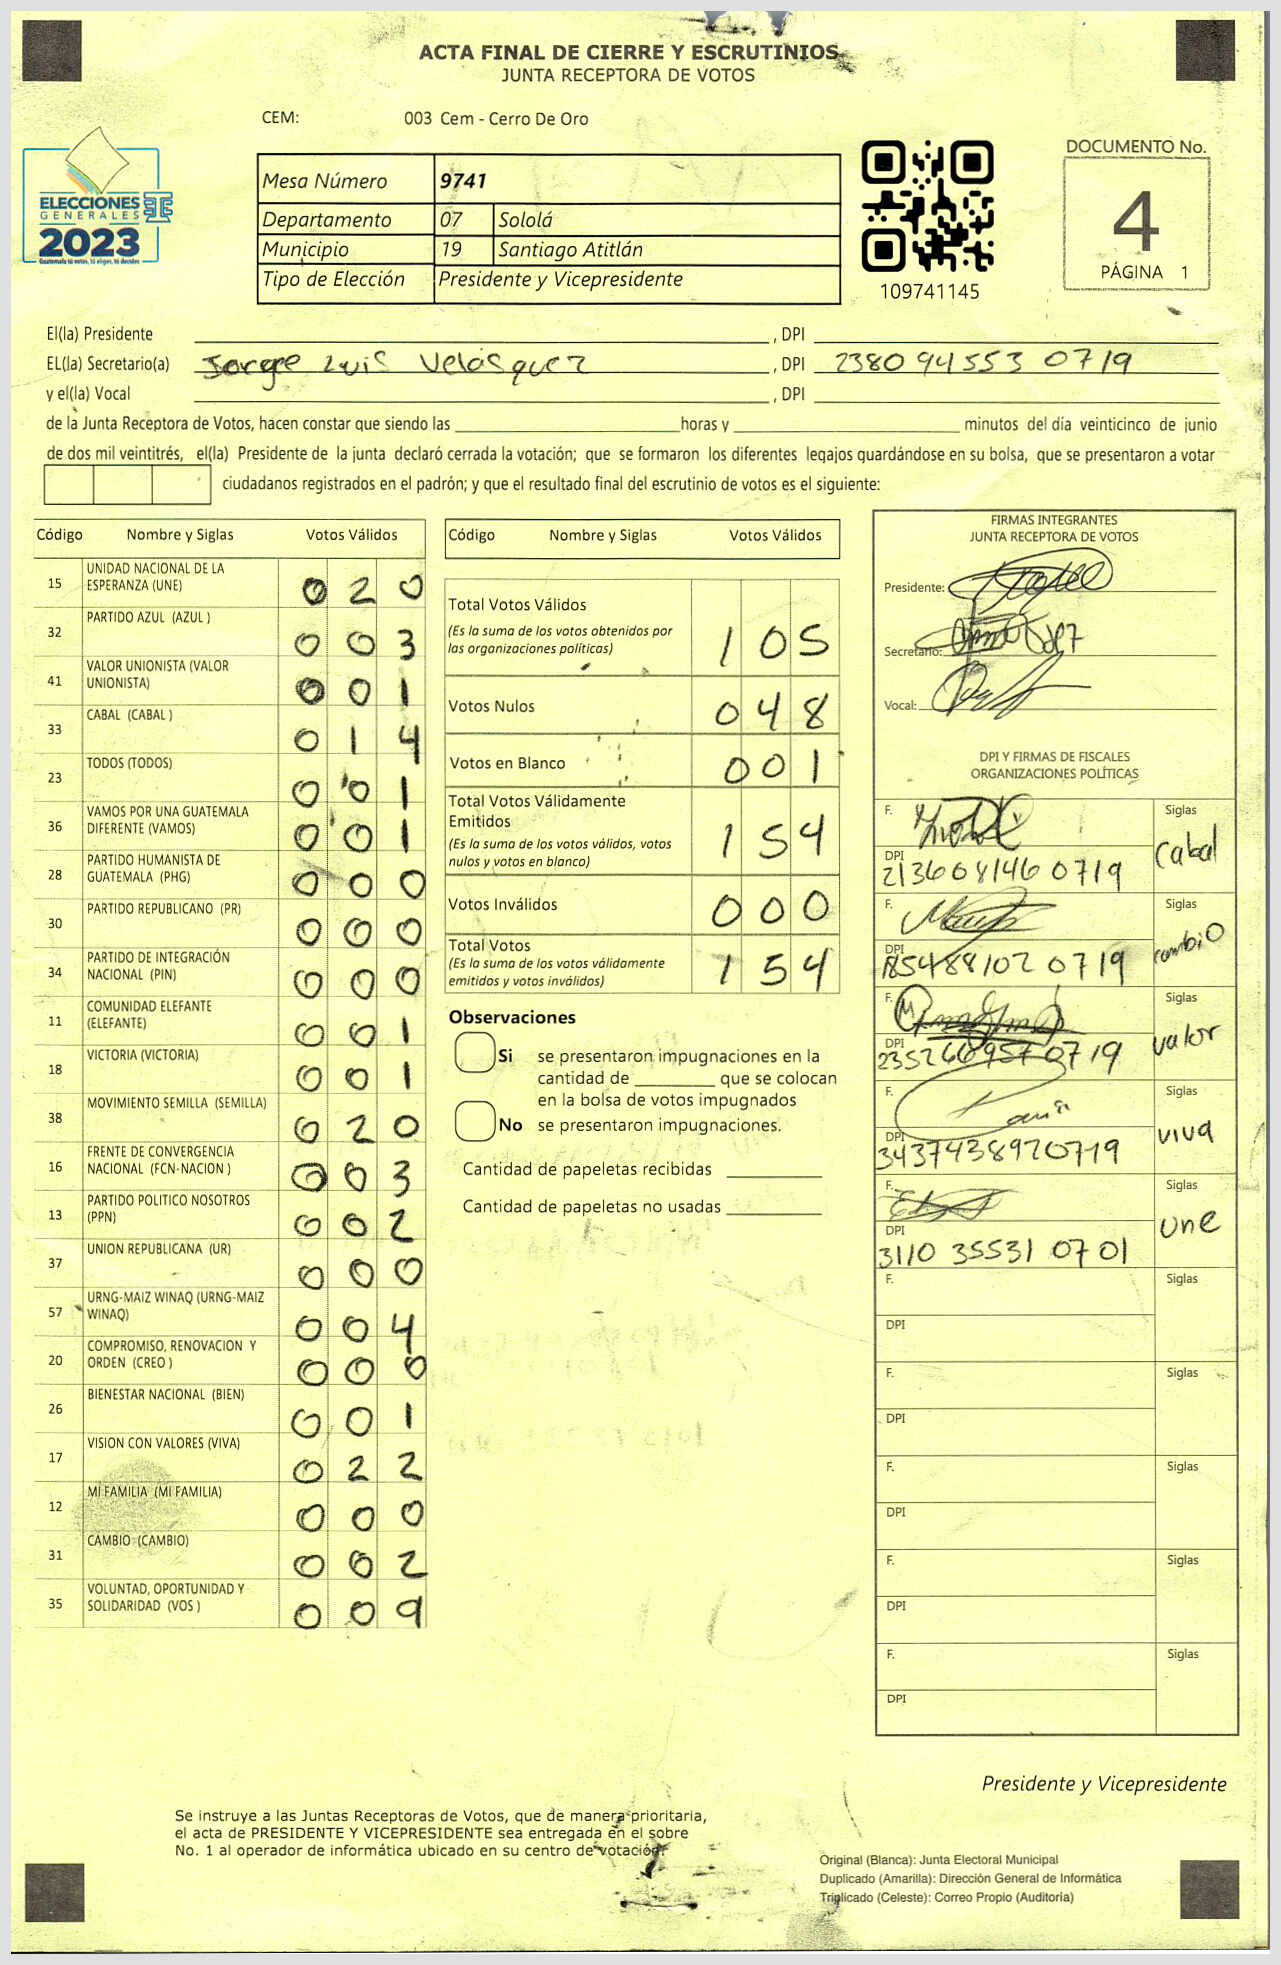 ACTA FINAL DE CIERRE Y ESCRUTINIOS
JUNTA RECEPTORA DE VOTOS
CEM: 003 Cem - Cerro De Oro
ELECCIONES
GENERALES
2023
Guatemala tú votas, tú eliges, tú decides
Mesa Número 9741
Departamento 07 Sololá
Municipio 19 Santiago Atitlán
Tipo de Elección Presidente y Vicepresidente
109741145
DOCUMENTO No.
4
PÁGINA 1
El(la) Presidente , DPI
EL(la) Secretario(a) Jorge Luis Velásquez , DPI 2380 94553 0719
y el(la) Vocal , DPI
de la Junta Receptora de Votos, hacen constar que siendo las horas y minutos del día veinticinco de junio
de dos mil veintitrés, el(la) Presidente de la junta declaró cerrada la votación; que se formaron los diferentes legajos guardándose en su bolsa, que se presentaron a votar
ciudadanos registrados en el padrón; y que el resultado final del escrutinio de votos es el siguiente:
Código Nombre y Siglas Votos Válidos
15 UNIDAD NACIONAL DE LA
ESPERANZA (UNE) 0 2 0
32 PARTIDO AZUL (AZUL ) 0 0 3
41 VALOR UNIONISTA (VALOR
UNIONISTA) 0 0 1
33 CABAL (CABAL ) 0 1 4
23 TODOS (TODOS) 0 0 1
36 VAMOS POR UNA GUATEMALA
DIFERENTE (VAMOS) 0 0 1
28 PARTIDO HUMANISTA DE
GUATEMALA (PHG) 0 0 0
30 PARTIDO REPUBLICANO (PR) 0 0 0
34 PARTIDO DE INTEGRACIÓN
NACIONAL (PIN) 0 0 0
11 COMUNIDAD ELEFANTE
(ELEFANTE) 0 0 1
18 VICTORIA (VICTORIA) 0 0 1
38 MOVIMIENTO SEMILLA (SEMILLA) 0 2 0
16 FRENTE DE CONVERGENCIA
NACIONAL (FCN-NACION ) 0 0 3
13 PARTIDO POLITICO NOSOTROS
(PPN) 0 0 2
37 UNION REPUBLICANA (UR) 0 0 0
57 URNG-MAIZ WINAQ (URNG-MAIZ
WINAQ) 0 0 4
20 COMPROMISO, RENOVACION Y
ORDEN (CREO ) 0 0 0
26 BIENESTAR NACIONAL (BIEN) 0 0 1
17 VISION CON VALORES (VIVA) 0 2 2
12 MI FAMILIA (MI FAMILIA) 0 0 0
31 CAMBIO (CAMBIO) 0 0 2
35 VOLUNTAD, OPORTUNIDAD Y
SOLIDARIDAD (VOS ) 0 0 9
Código Nombre y Siglas Votos Válidos
Total Votos Válidos
(Es la suma de los votos obtenidos por
las organizaciones políticas) 1 0 5
Votos Nulos 0 4 8
Votos en Blanco 0 0 1
Total Votos Válidamente
Emitidos
(Es la suma de los votos válidos, votos
nulos y votos en blanco) 1 5 4
Votos Inválidos 0 0 0
Total Votos
(Es la suma de los votos válidamente
emitidos y votos inválidos) 1 5 4
Observaciones
Si se presentaron impugnaciones en la
cantidad de que se colocan
en la bolsa de votos impugnados
No se presentaron impugnaciones.
Cantidad de papeletas recibidas
Cantidad de papeletas no usadas
FIRMAS INTEGRANTES
JUNTA RECEPTORA DE VOTOS
Presidente:
Secretario:
Vocal:
DPI Y FIRMAS DE FISCALES
ORGANIZACIONES POLÍTICAS
F. Siglas
cabal
DPI
213608146 0719
F. Siglas
cambio
DPI
185488102 0719
F. Siglas
valor
DPI
0719
F. Siglas
viva
DPI
3437438920719
F. Siglas
une
DPI
3110 35531 0701
F. Siglas
DPI
F. Siglas
DPI
F. Siglas
DPI
F. Siglas
DPI
F. Siglas
DPI
Presidente y Vicepresidente
Se instruye a las Juntas Receptoras de Votos, que de manera prioritaria,
el acta de PRESIDENTE Y VICEPRESIDENTE sea entregada en el sobre
No. 1 al operador de informática ubicado en su centro de votación.
Original (Blanca): Junta Electoral Municipal
Duplicado (Amarilla): Dirección General de Informática
Triplicado (Celeste): Correo Propio (Auditoria)